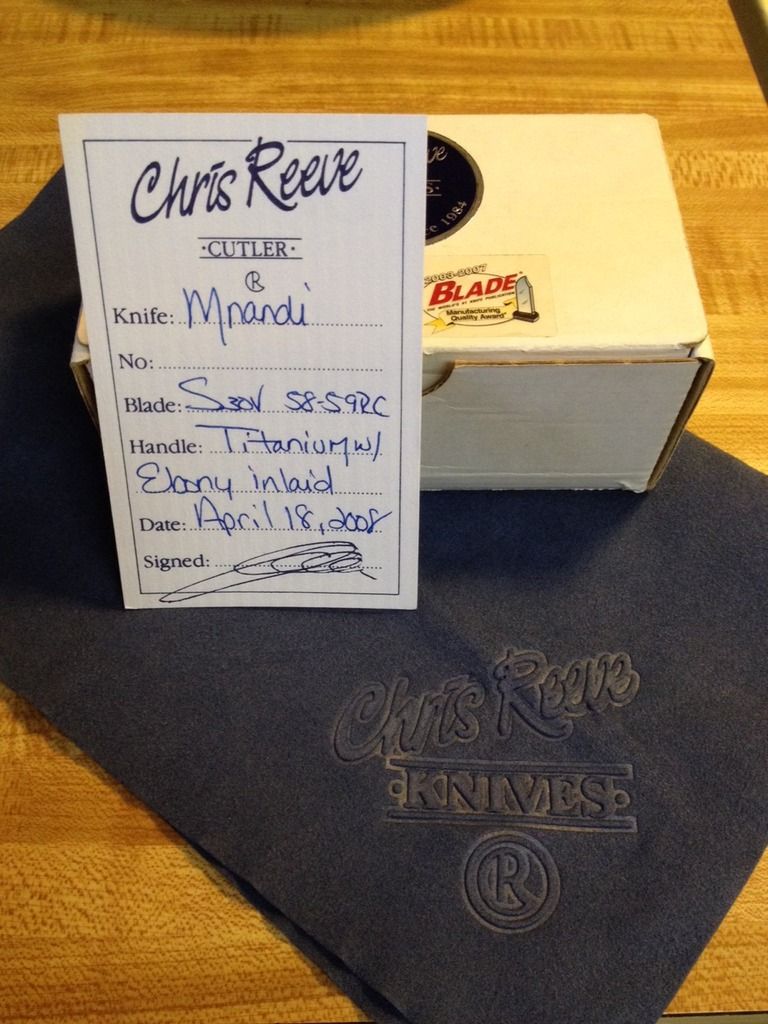 Chris Reeve
·CUTLER·
R
Knife: Mnandi
No:
Blade: S30V 58-59RC
Handle: Titanium w/
Ebony inlaid
Date: April 18, 2008
Signed:
ve
S·
ce 1984
2003-2007
BLADE
THE WORLD'S #1 KNIFE PUBLICATION
Manufacturing
Quality Award
Chris Reeve
·KNIVES·
R